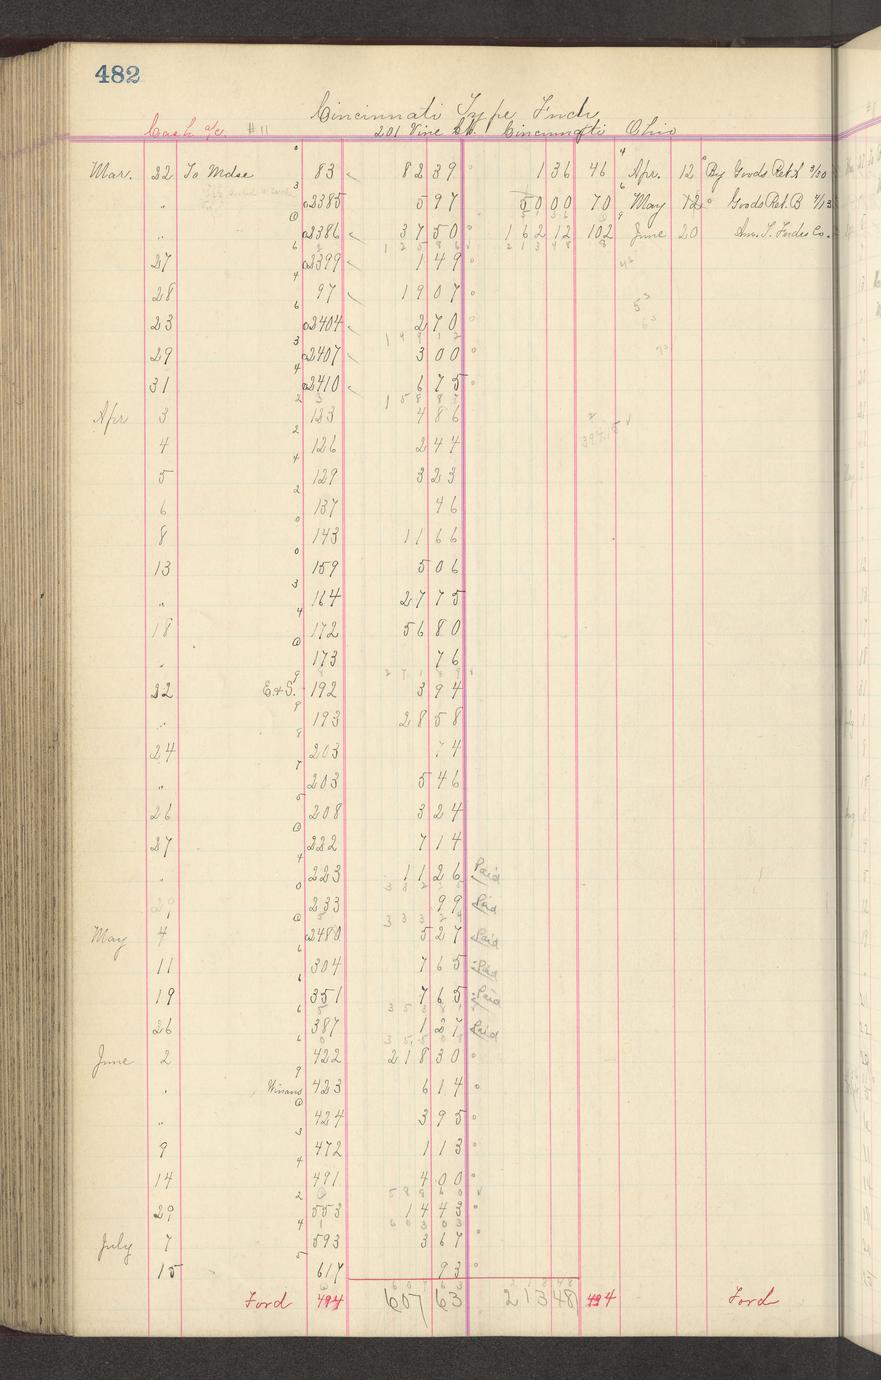 482
Cincinnati Type Fndr
Cash a/c. #11 201 Vine St. Cincinnati Ohio
Mar. 22 To Mdse 83 82 39 1 36 46 Apr. 12 By Goods Ret. A 3/30
" 2385 5 97 50 00 70 May 12 Goods Ret. B 4/13
" 2386 37 50 162 12 102 June 20 Am. T. Fndrs Co.
27 2399 1 49
28 97 19 07
23 2404 2 70
29 2407 3 00
31 2410 6 75
Apr 3 123 4 86
4 126 2 44
5 129 3 23
6 137 46
8 143 11 66
13 159 5 06
" 164 27 75
18 172 56 80
" 173 76
22 E+S. 192 3 94
" 193 28 58
24 203 74
" 203 5 46
26 208 3 24
27 222 7 14
" 223 11 26 Paid
29 233 99 Paid
May 4 2480 5 27 Paid
11 304 7 65 Paid
19 351 7 65 Paid
26 387 1 27 Paid
June 2 422 218 30
" Winans 423 6 14
" 424 3 95
9 472 1 13
14 491 4 00
29 553 14 43
July 7 593 3 67
15 617 93
Ford 494 607 63 213 48 494 Ford